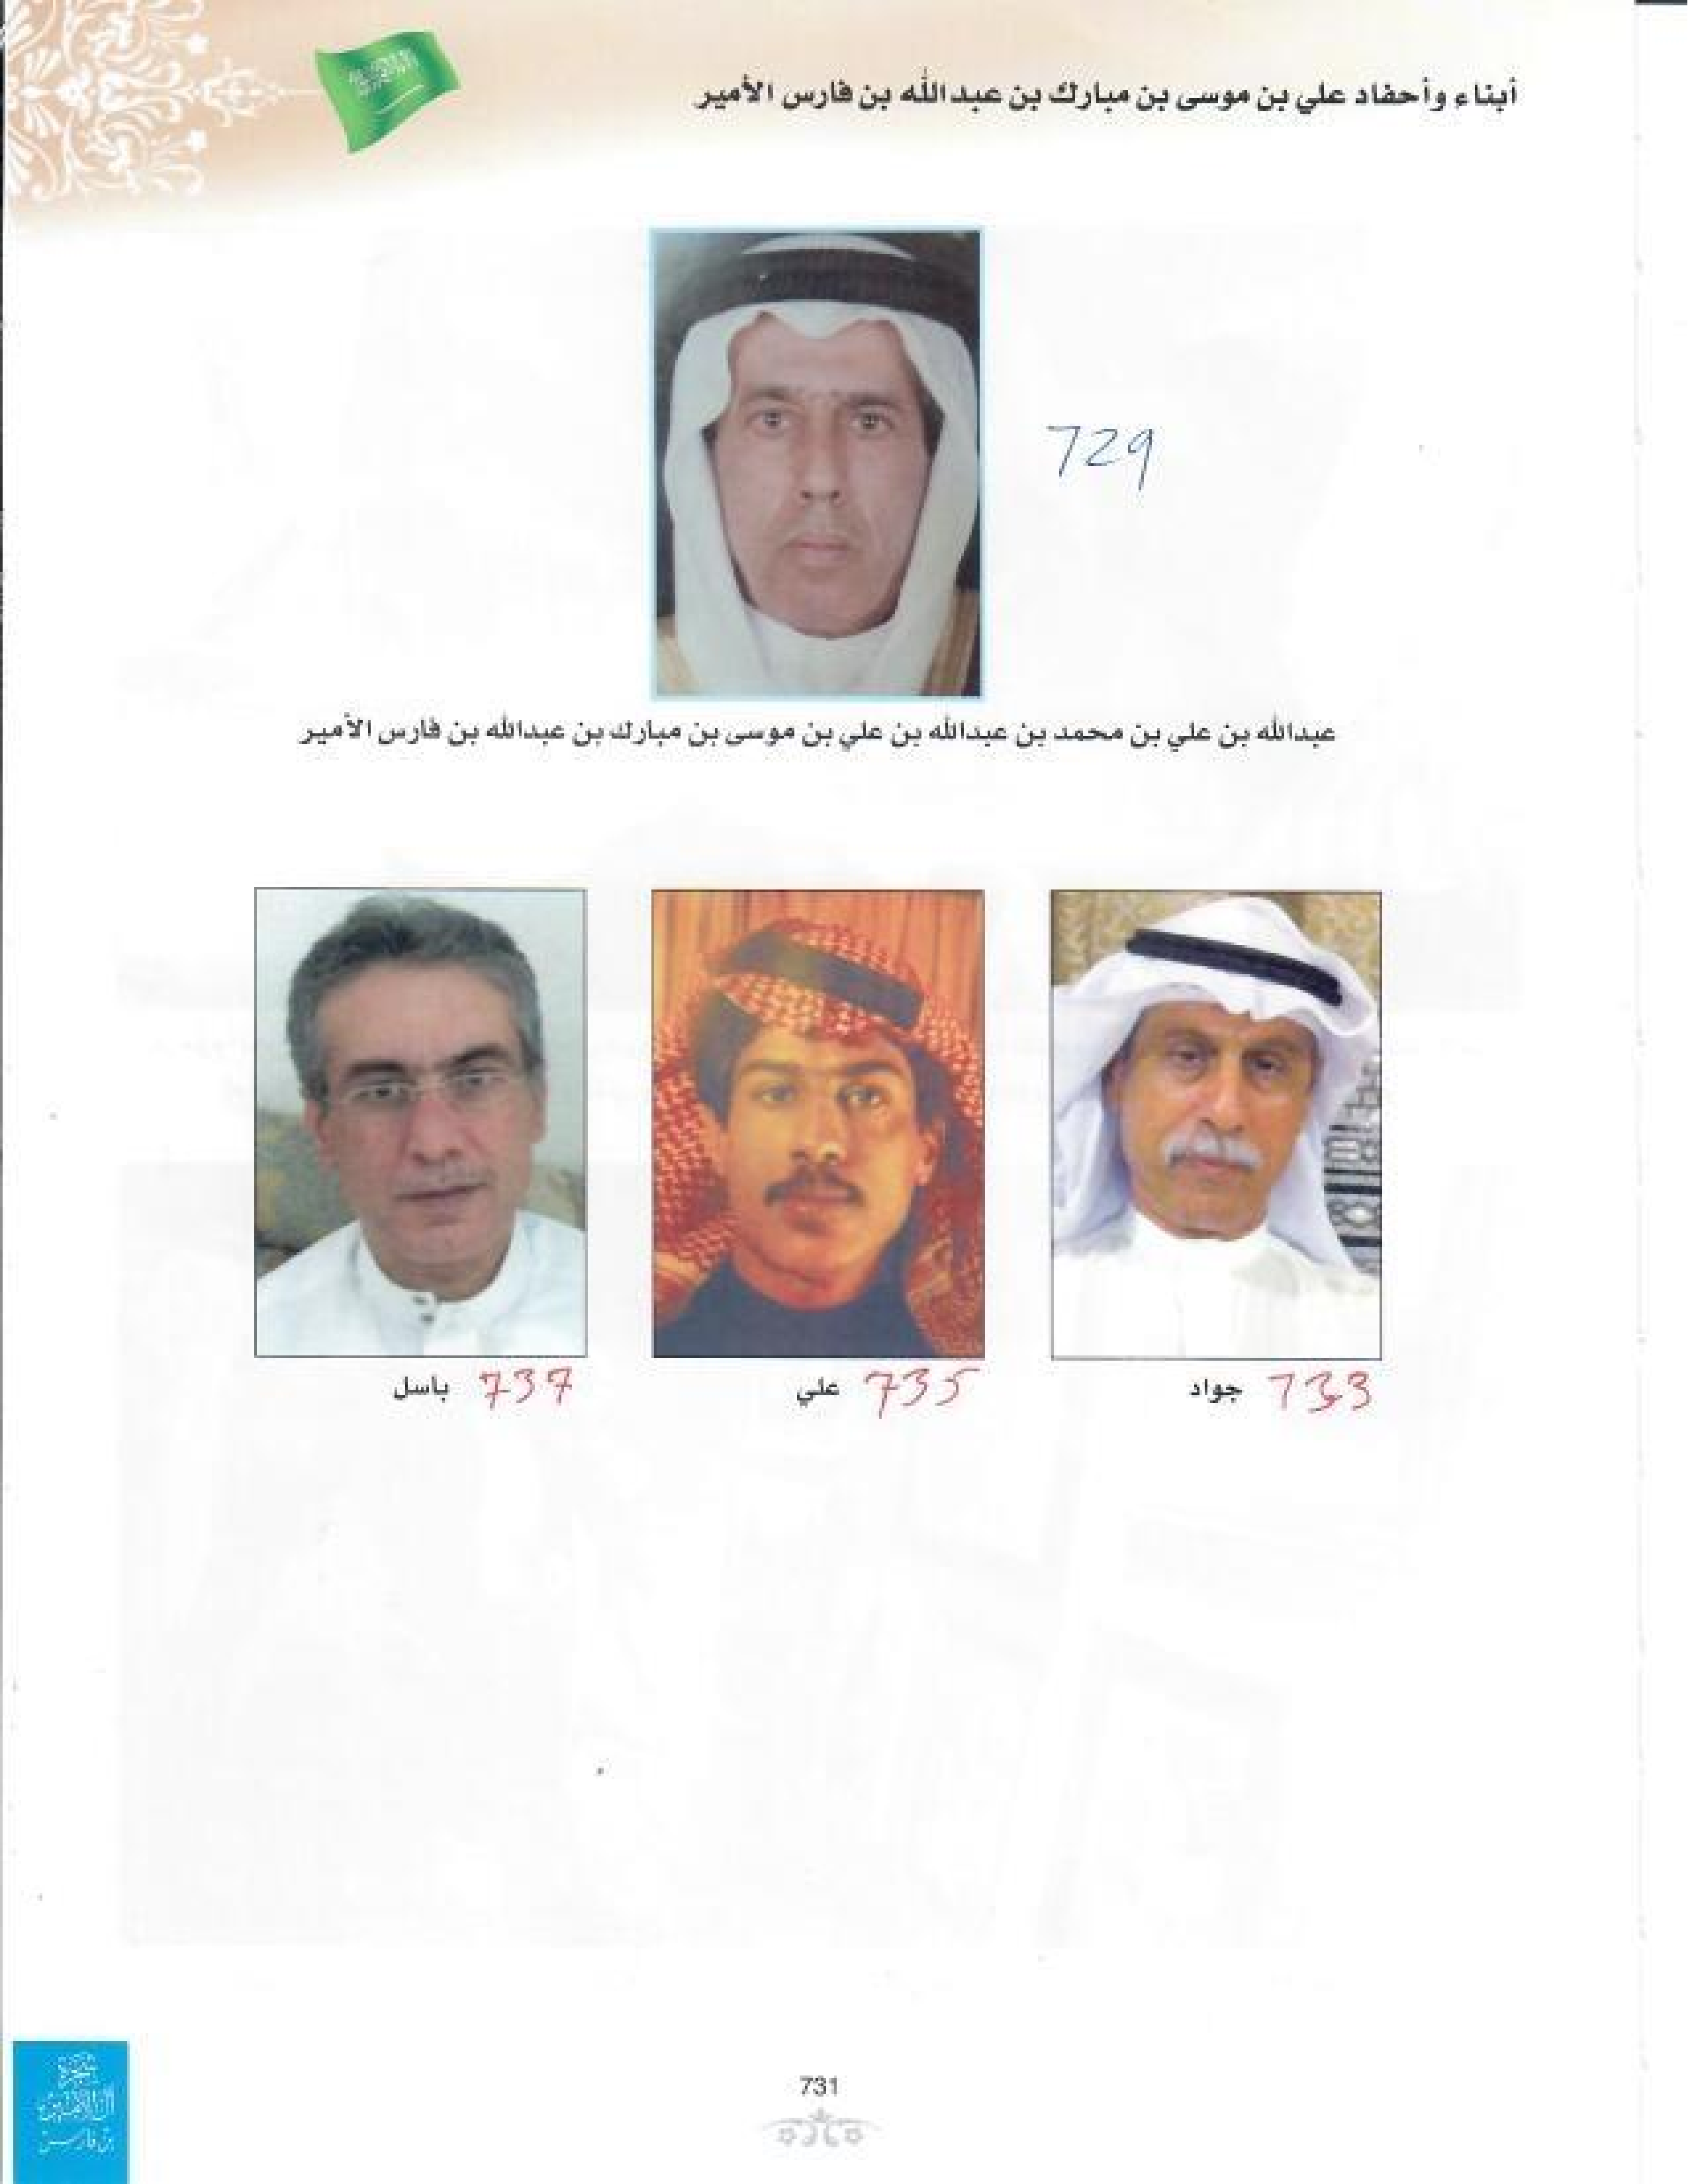 أبناء وأحفاد علي بن موسى بن مبارك بن عبدالله بن فارس الأمير
729
عبدالله بن علي بن محمد بن عبدالله بن علي بن موسى بن مبارك بن عبدالله بن فارس الأمير
جواد 733
علي 735
باسل 737
شجرة
آل الأمير
بن فارس
731